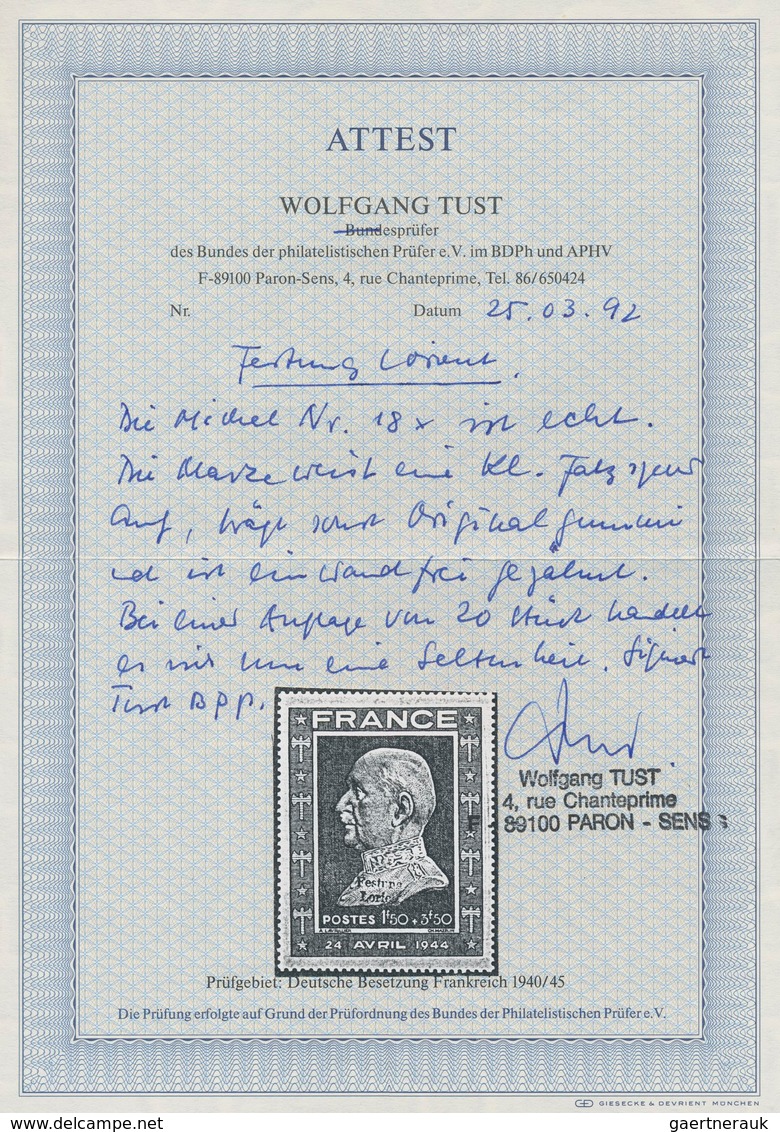 ATTEST
WOLFGANG TUST
Bundesprüfer
des Bundes der philatelistischen Prüfer e.V. im BDPh und APHV
F-89100 Paron-Sens, 4, rue Chanteprime, Tel. 86/650424
Nr. Datum 25.03.92
Festung Lorient.
Die Michel Nr. 18x ist echt.
Die Marke weist eine kl. Falzspur
auf, trägt sonst Originalgummi
und ist einwandfrei gezähnt.
Bei einer Auflage von 20 Stück handelt
es sich um eine Seltenheit. Signiert
Tust BPP.
FRANCE
Festung
Lorient
POSTES 1F50 + 3F50
24 AVRIL 1944
Wolfgang TUST
4, rue Chanteprime
F - 89100 PARON - SENS
Prüfgebiet: Deutsche Besetzung Frankreich 1940/45
Die Prüfung erfolgte auf Grund der Prüfordnung des Bundes der Philatelistischen Prüfer e.V.
GIESECKE & DEVRIENT MÜNCHEN
gaertnerauk